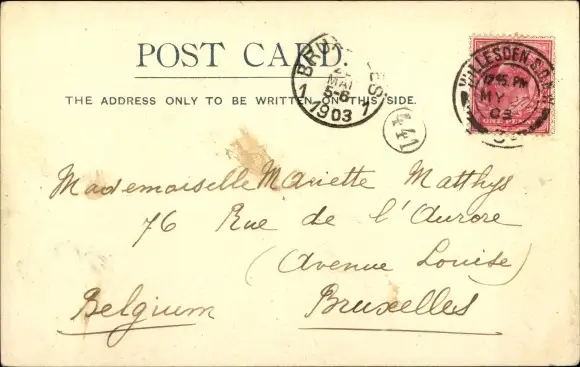 POST CARD.
THE ADDRESS ONLY TO BE WRITTEN ON THIS SIDE.
1 1903 1
MAI
5-6
441
WILLESDEN S.O.
PM
MY
03
Mademoiselle Mariette Matthys
76 Rue de l'Aurore
(Avenue Louise)
Belgium Bruxelles